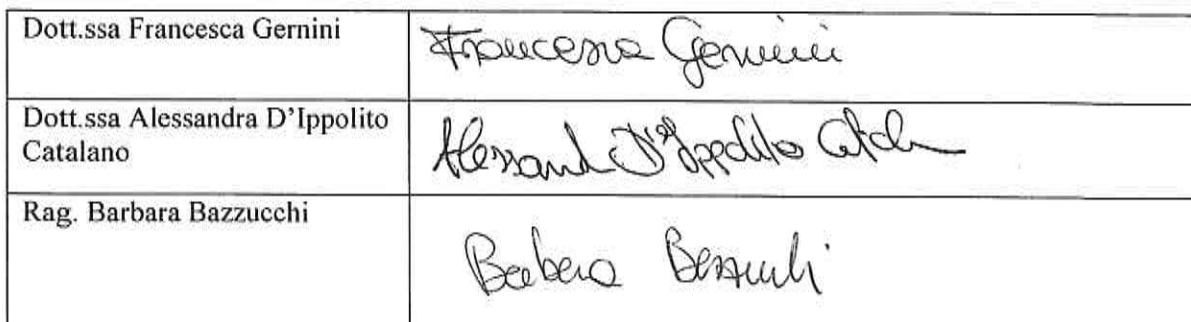 Dott.ssa Francesca Gernini
Francesca Gernini
Dott.ssa Alessandra D'Ippolito
Catalano
Alessand D'Ippolito
Rag. Barbara Bazzucchi
Barbara